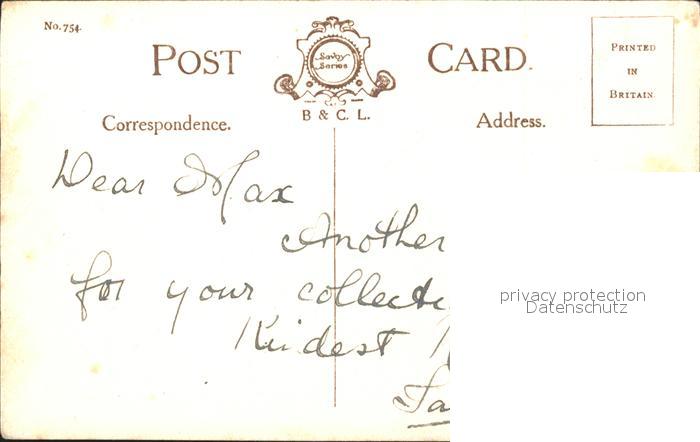 No. 754.
POST CARD.
Savoy
Series
B & C. L.
PRINTED
IN
BRITAIN.
Correspondence.
Address.
Dear Max
Another
for your
Kindest
privacy protection
Datenschutz